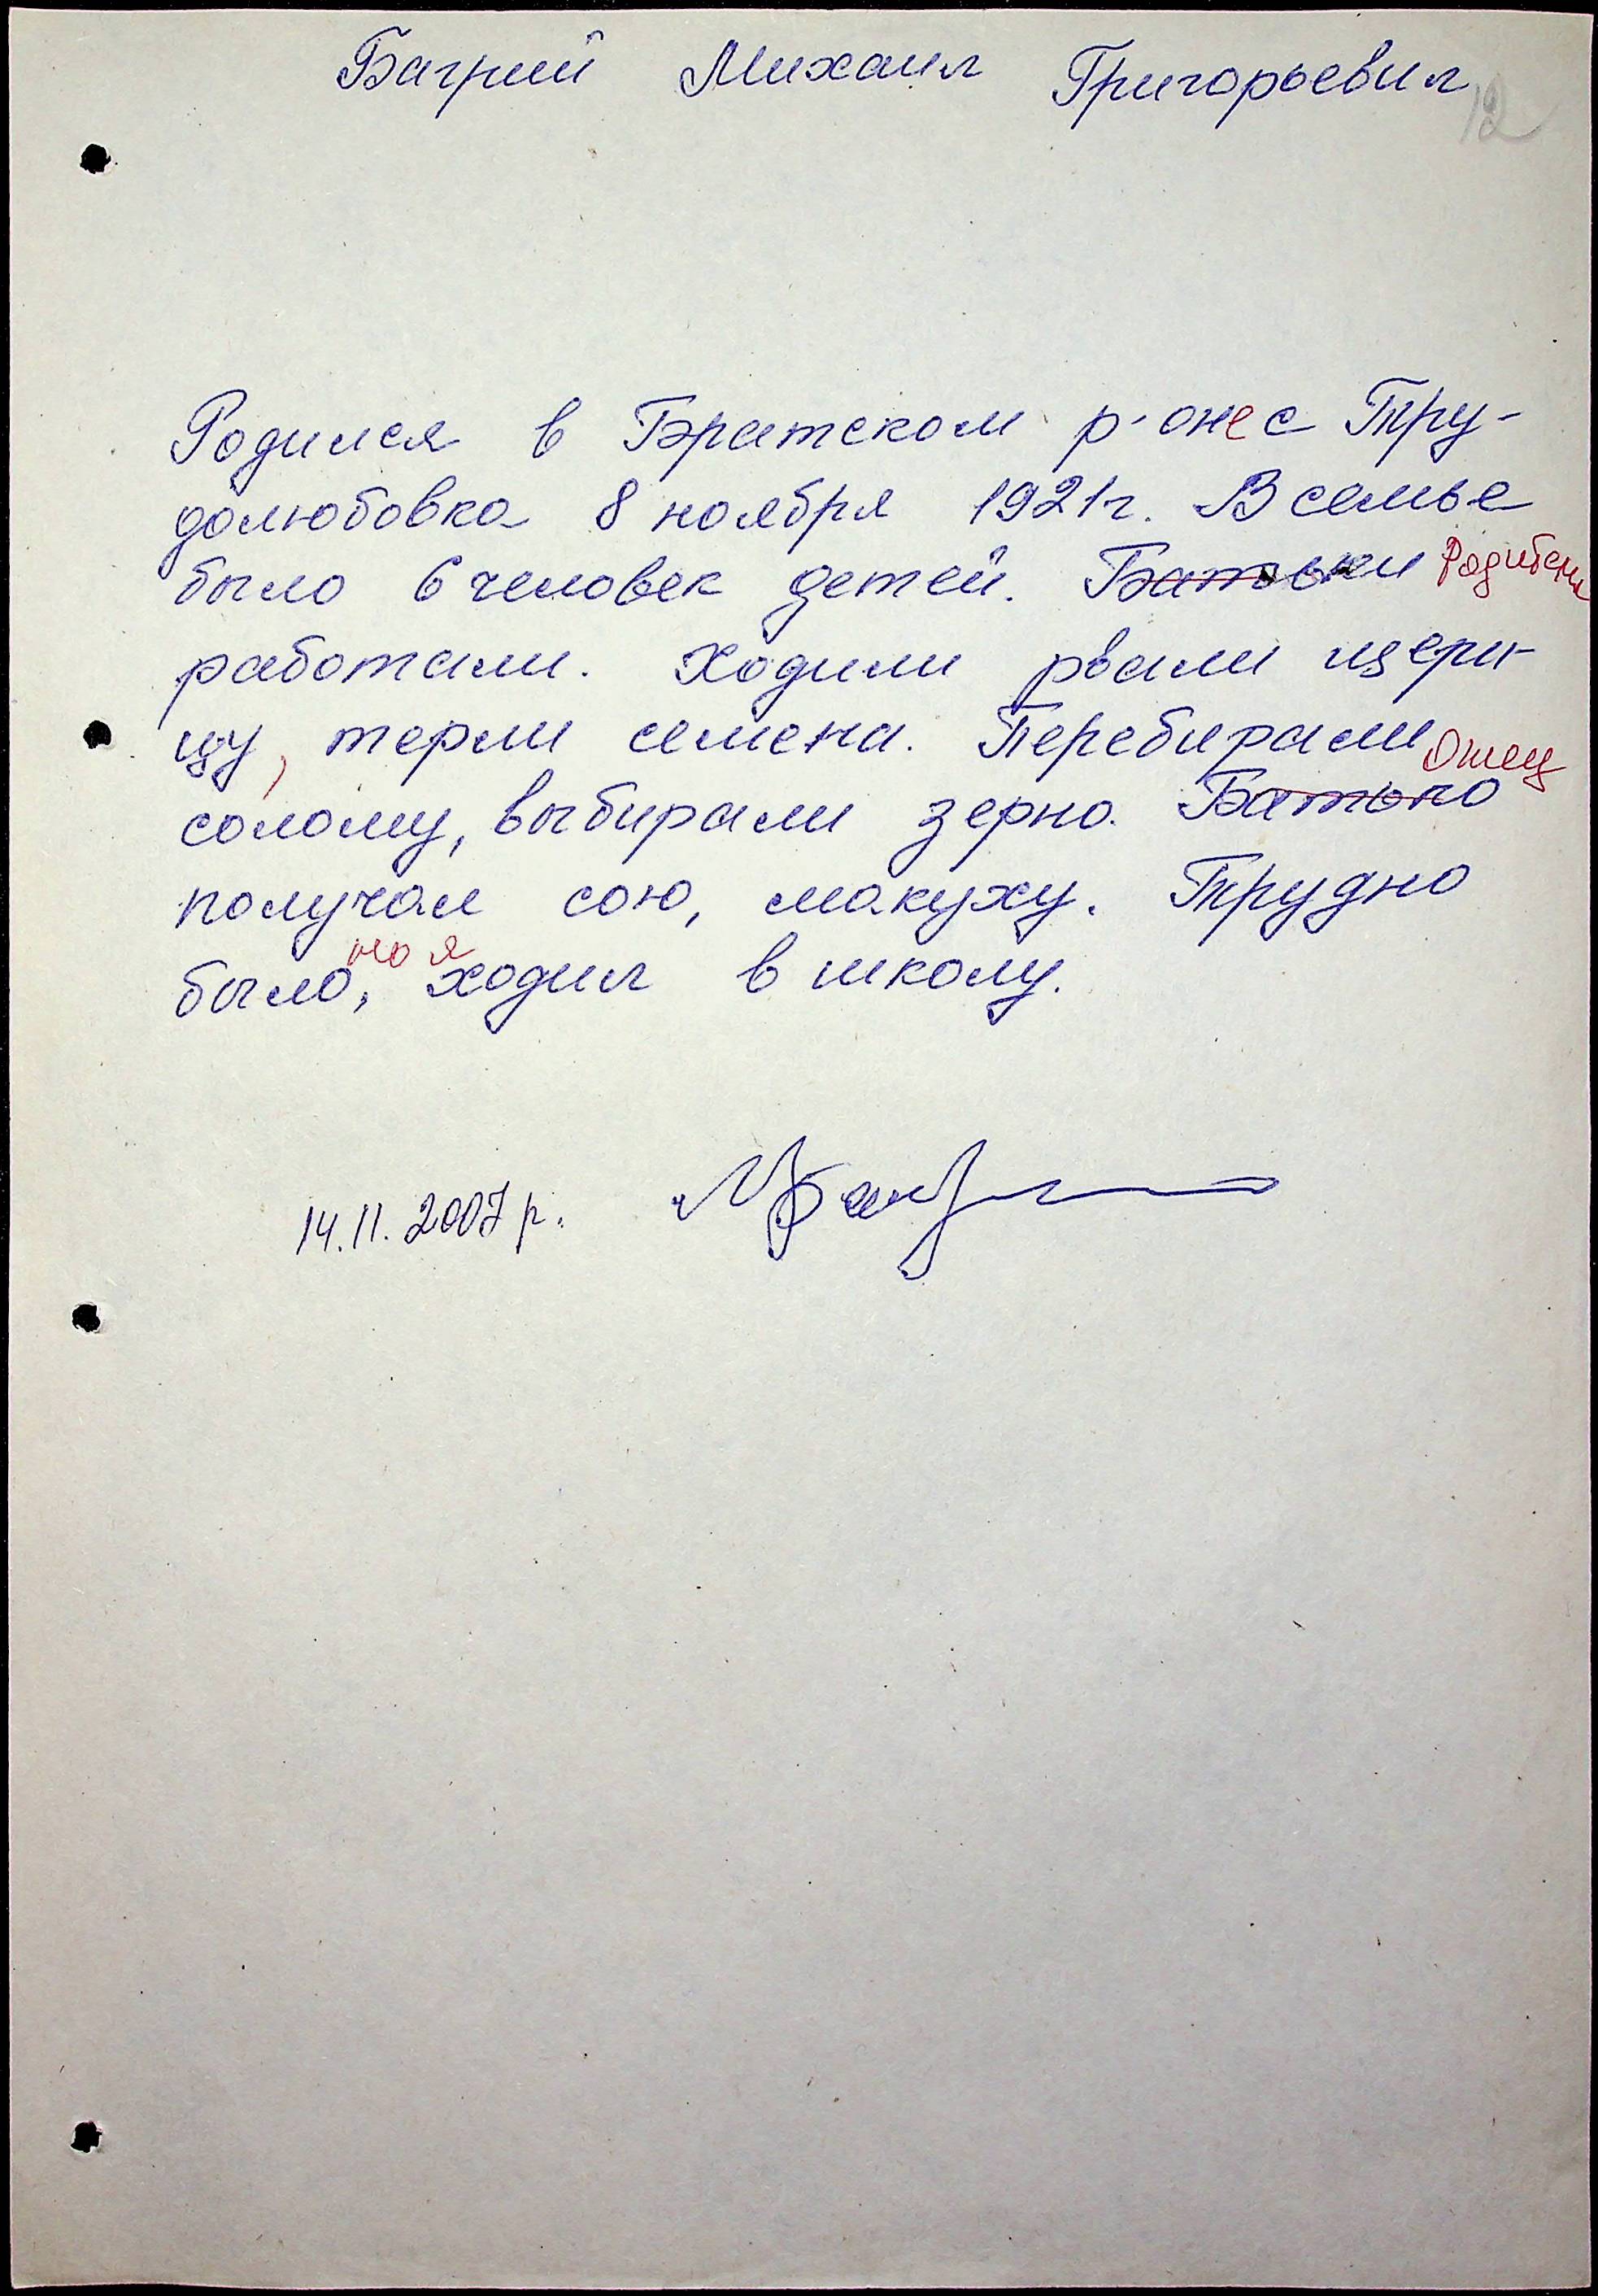 Багрий Михаил Григорьевич
12
Родился в Братском р-оне с Тру-
долюбовка 8 ноября 1921г. В семье
было 6 человек детей. Батьки Родители
работали. Ходили рвали щери-
цу, терли семена. Перебирали
солому, выбирали зерно. Батько Отец
получал сою, макуху. Трудно
было, но я ходил в школу.
14.11.2007 р.